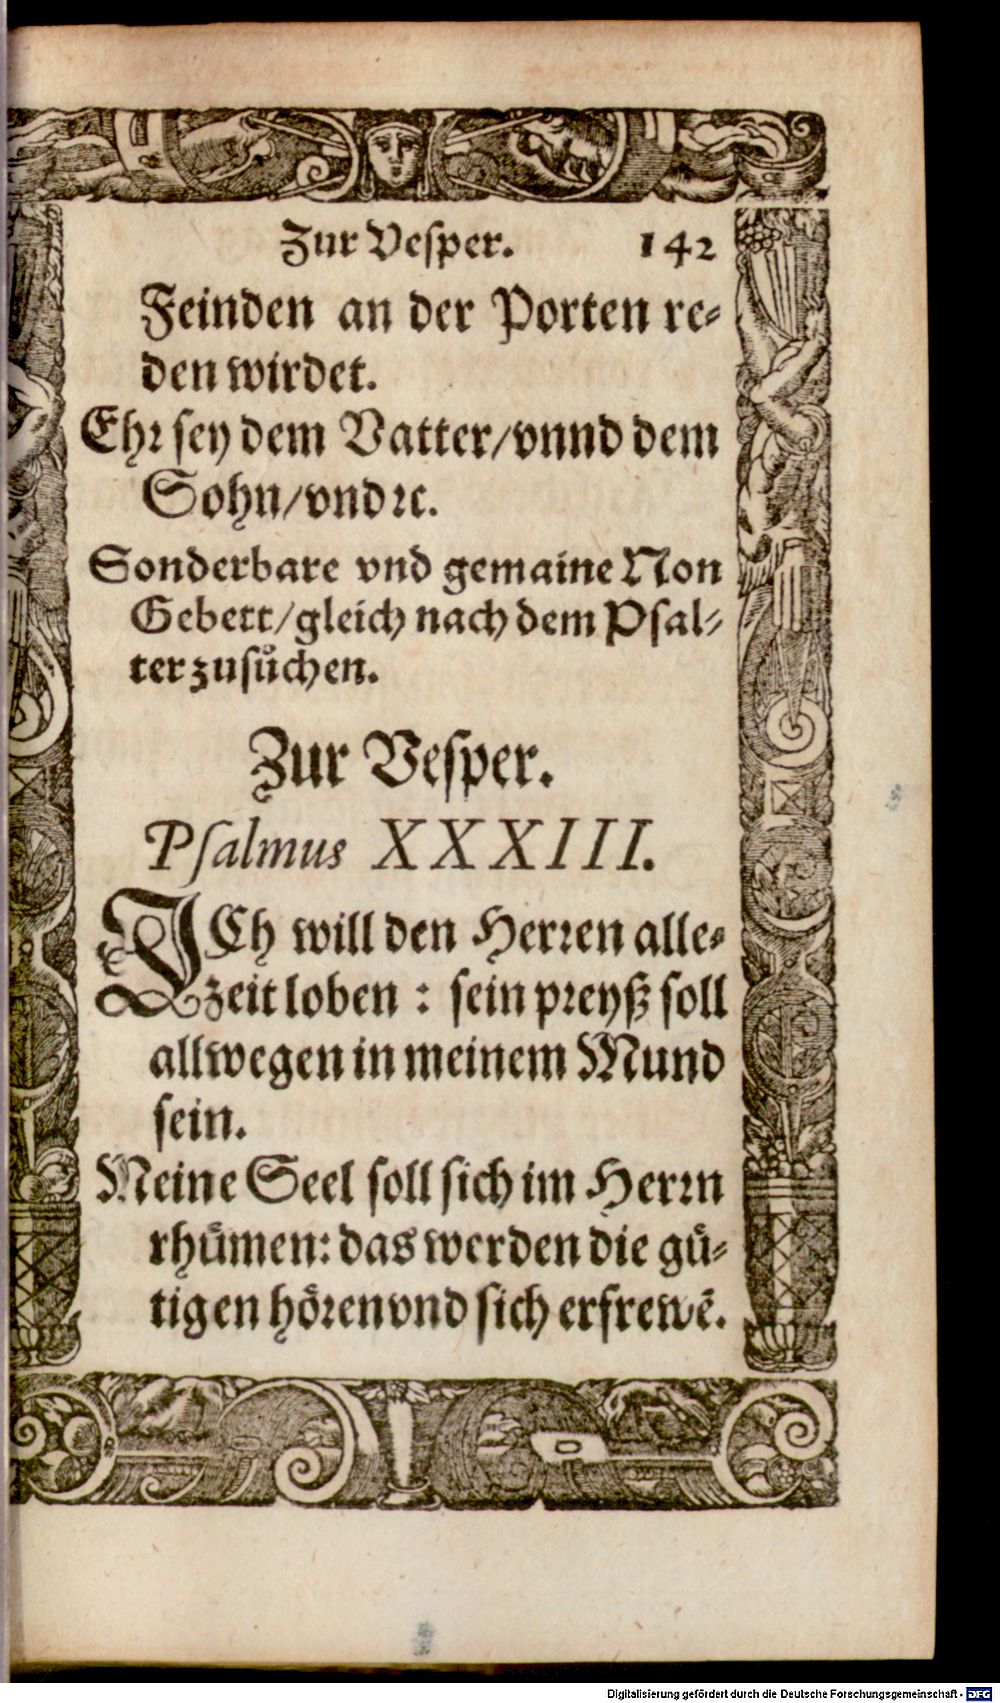 Zur Vesper. 142
Feinden an der Porten re⸗
den wirdet.
Ehꝛ sey dem Vatter/vnnd dem
Sohn/vnd ꝛc.
Sonderbare vnd gemaine Non
Gebett/gleich nach dem Psal⸗
ter zusuͤchen.
Zur Vesper.
Psalmus XXXIII.
ICh will den Herꝛen alle⸗
zeit loben : sein pꝛeyß soll
allwegen in meinem Mund
sein.
Meine Seel soll sich im Herꝛn
rhuͤmen: das werden die guͤ⸗
tigen hoͤꝛen vnd sich erfrewē.
Digitalisierung gefördert durch die Deutsche Forschungsgemeinschaft - DFG